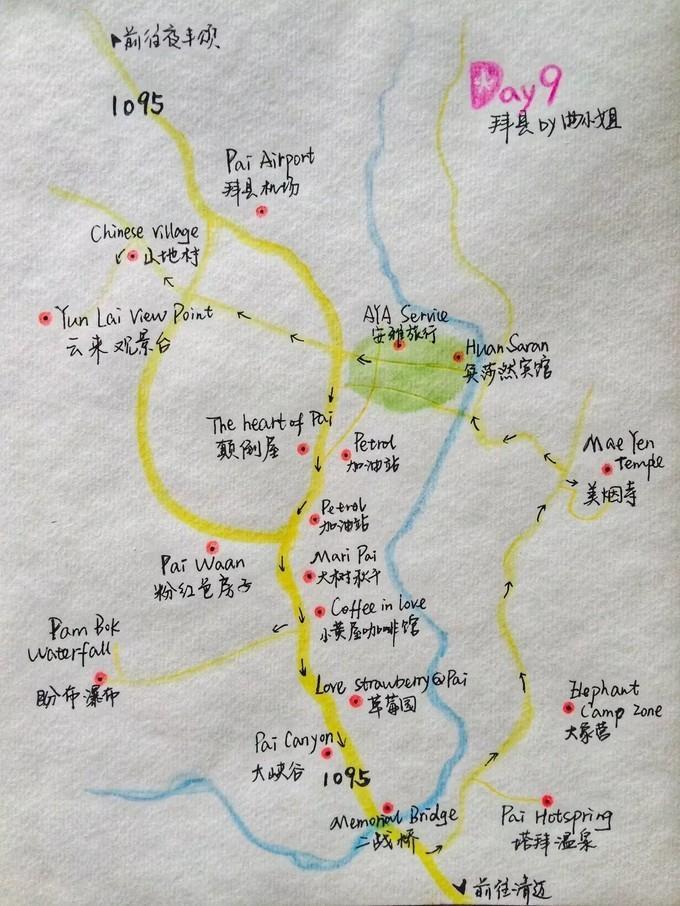 前往夜丰颂
1095
Day 9
拜县 by 曲小姐
Pai Airport
拜县机场
Chinese village
山地村
Yun Lai View Point
云来观景台
AYA Service
安雅旅行
Huan Saran
奂莎然宾馆
The heart of Pai
颠倒屋
Petrol
加油站
Mae Yen
Temple
美烟寺
Petrol
加油站
Pai Waan
粉红色房子
Mari Pai
大树秋千
Coffee in love
小黄屋咖啡馆
Pam Bok
Waterfall
盼布瀑布
Love strawberry@Pai
草莓园
Elephant
Camp Zone
大象营
Pai Canyon
大峡谷
1095
Memorial Bridge
二战桥
Pai Hotspring
塔拜温泉
前往清迈